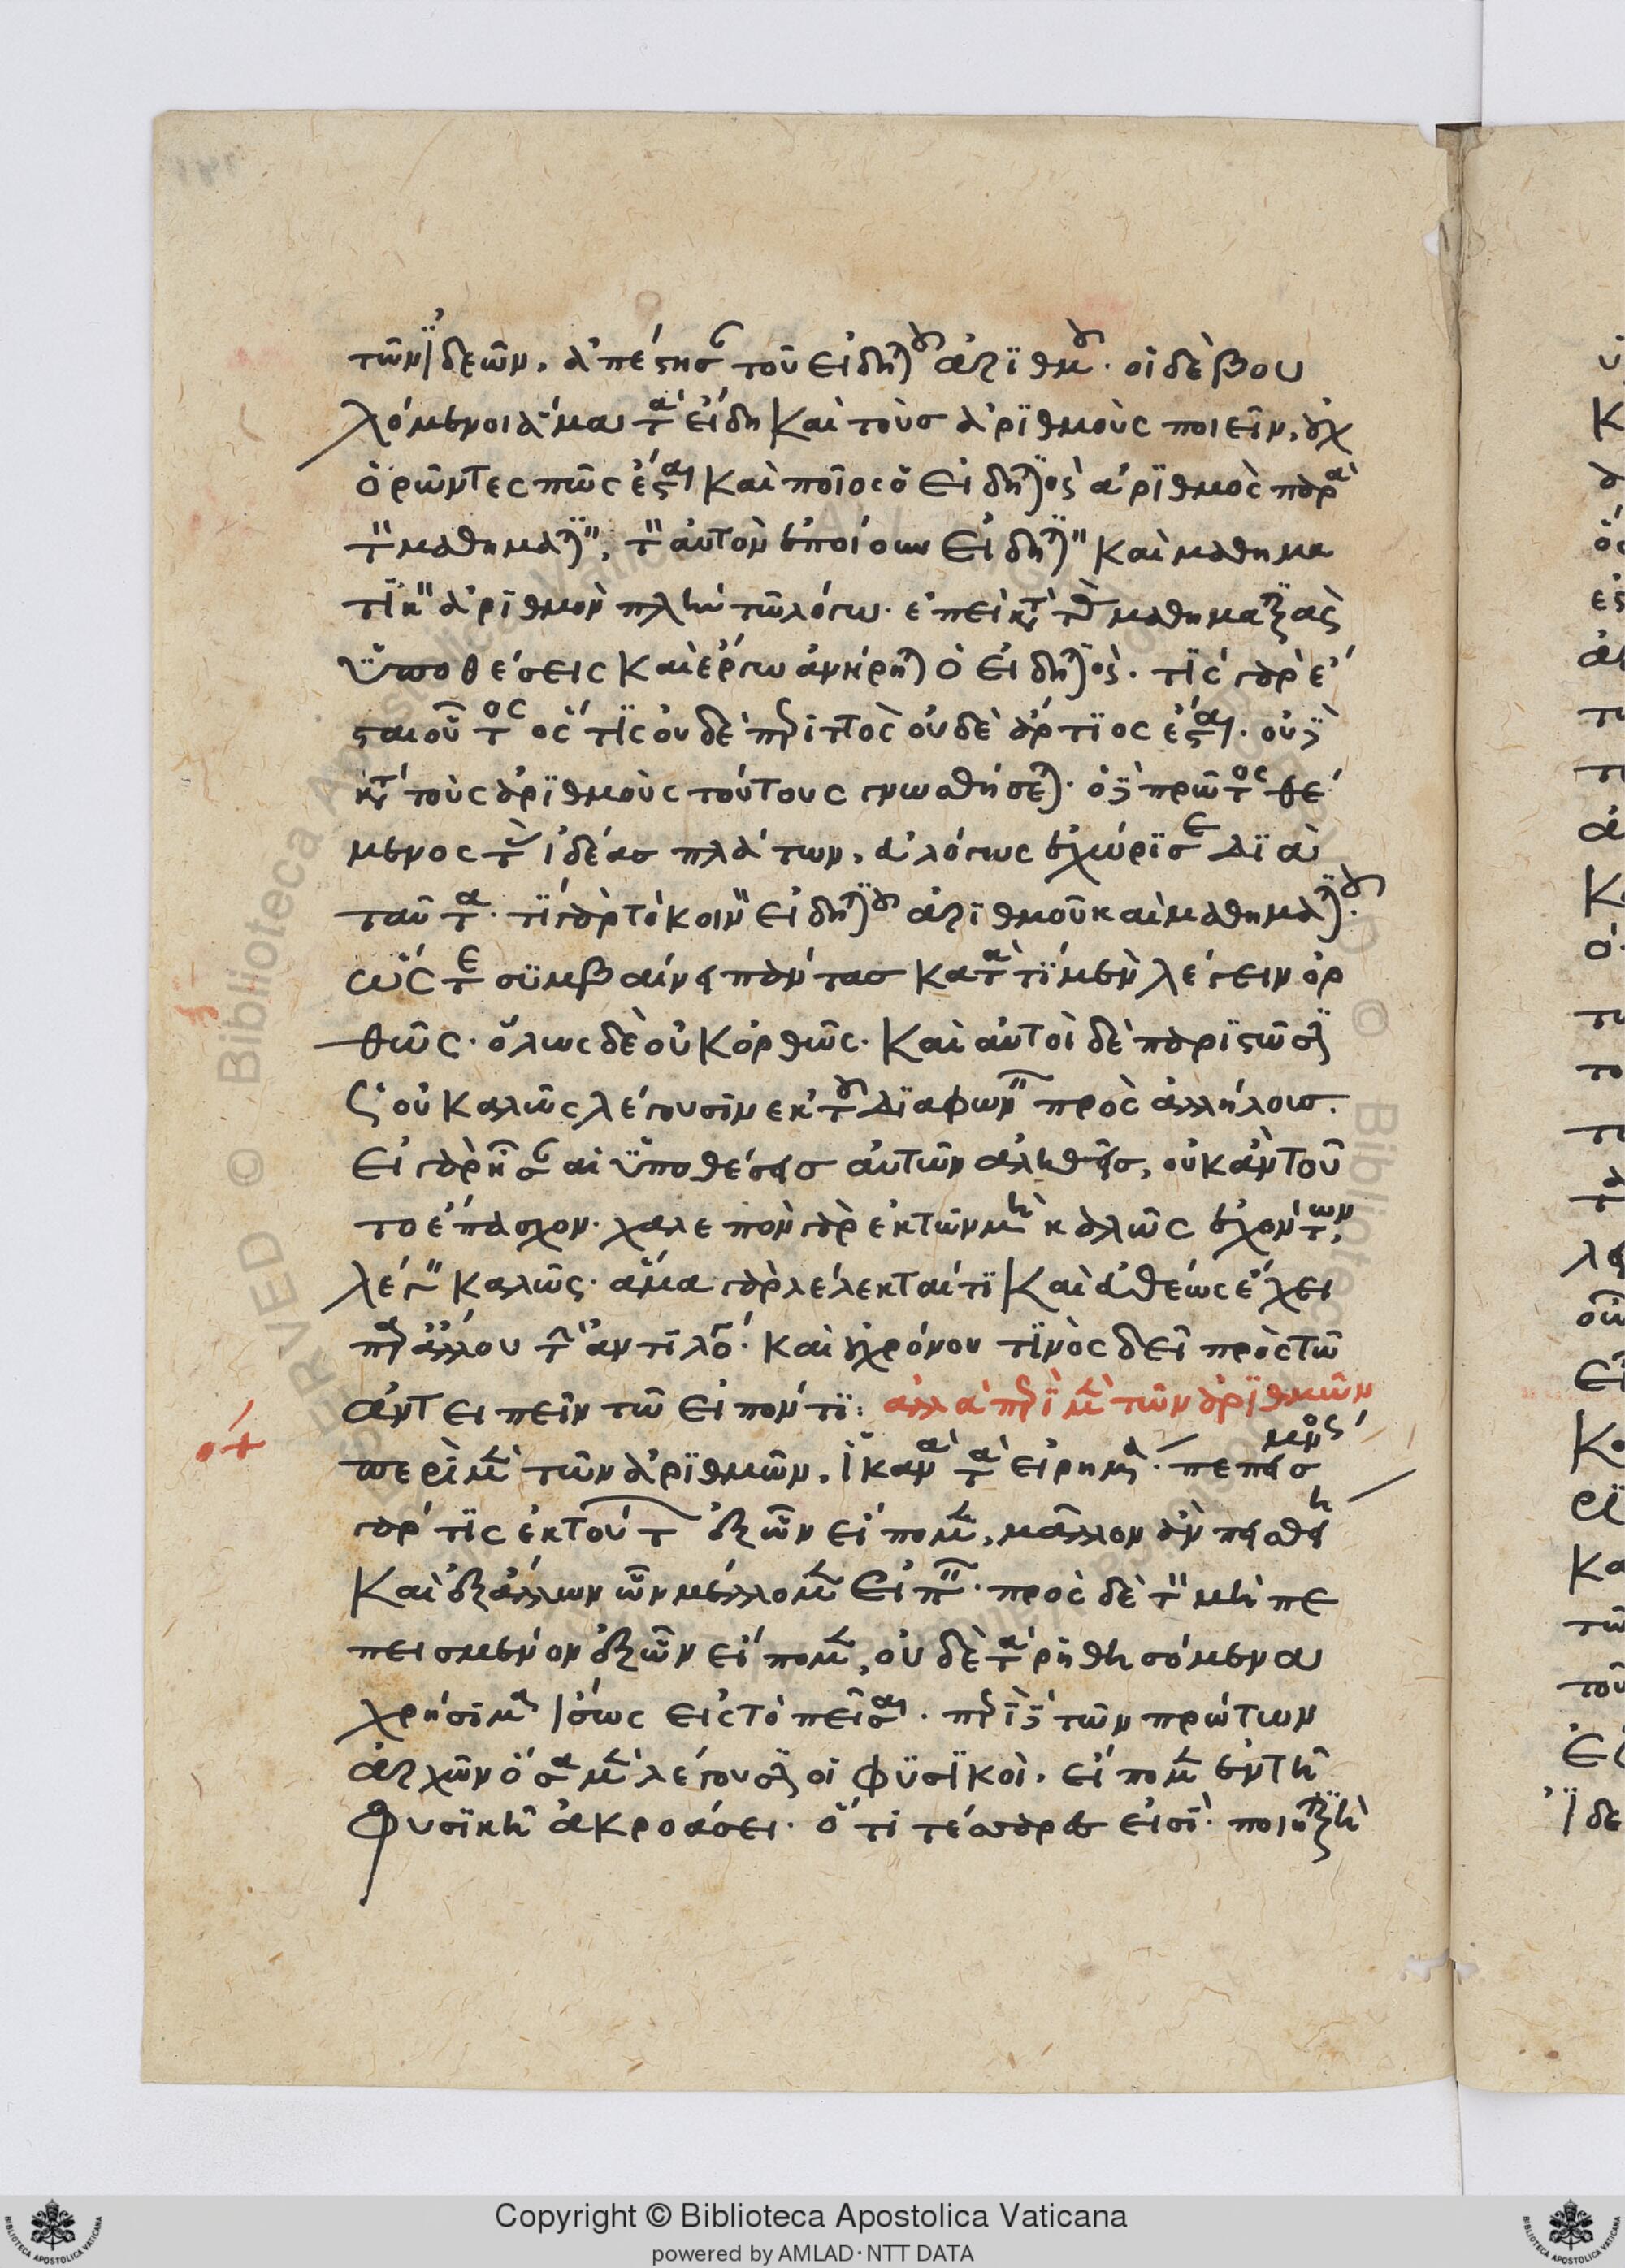 τῶν ἰδεῶν, ἀπέστησαν τοῦ εἰδητικοῦ ἀριθμοῦ. οἱ δὲ βου
λόμενοι ἅμα τὰ εἴδη καὶ τοὺς ἀριθμοὺς ποιεῖν, οὐχ
ὁρῶντες πῶς ἔσται καὶ ποῖος ὁ εἰδητικὸς ἀριθμὸς παρὰ
τὸν μαθηματικόν, τὸν αὐτὸν ἐποίουν εἰδητικὸν καὶ μαθημα
τικὸν ἀριθμὸν πλὴν τῷ λόγῳ. ἐπεὶ κατὰ τὰς μαθηματικὰς
ὑποθέσεις καὶ ἔργῳ ἀνῄρηται ὁ εἰδητικός. τίς γὰρ ἔ
σται οὗτος ὅστις οὐδὲ περιττὸς οὐδὲ ἄρτιος ἔσται. οὐδὲ
κατὰ τοὺς ἀριθμοὺς τούτους γνωσθήσεται. ὁ δὲ πρῶτος θέ
μενος τὰς ἰδέας πλάτων, ἀλόγως ἐχώρισε διὰ
ταῦτα. τί γὰρ τὸ κοινὸν εἰδητικοῦ ἀριθμοῦ καὶ μαθηματικοῦ.
ὥστε συμβαίνει πάντας κατὰ τὶ μὲν λέγειν ὀρ
θῶς. ὅλως δὲ οὐκ ὀρθῶς. καὶ αὐτοὶ δὲ παριστῶσιν
ὅτι οὐ καλῶς λέγουσιν ἐκ τοῦ διαφωνεῖν πρὸς ἀλλήλους.
εἰ γὰρ ἦσαν αἱ ὑποθέσεις αὐτῶν ἀληθεῖς, οὐκ ἂν τοῦ
το ἔπασχον. χαλεπὸν γὰρ ἐκ τῶν μὴ καλῶς ἐχόντων,
λέγειν καλῶς. ἅμα γὰρ λέλεκταί τι καὶ εὐθέως ἔχει
παρ' ἄλλου τὸν ἀντίλογον. καὶ οὐ χρόνου τινὸς δεῖ πρὸς τῶ
ἀντειπεῖν τῶ εἰπόντι: ἀλλὰ περὶ μὲν τῶν ἀριθμῶν
περὶ μὲν τῶν ἀριθμῶν, ἱκανὰ τὰ εἰρημένα. πεπεισμένος
γάρ τις ἐκ τούτων ἐξ ὧν εἴπομεν, μᾶλλον ἂν πεισθείη
καὶ ἐξ ἄλλων ὧν μέλλομεν εἰπεῖν. πρὸς δὲ τὸν μὴ πε
πεισμένον ἐξ ὧν εἴπομεν, οὐδὲ τὰ ῥηθησόμενα
χρήσιμα ἴσως εἰς τὸ πεῖσαι. περὶ δὲ τῶν πρώτων
ἀρχῶν ὅσα μὲν λέγουσιν οἱ φυσικοὶ, εἴπομεν ἐν τῆ
φυσικῆ ἀκροάσει. ὅτι τέσσαρες εἰσί. ποιητικὴ